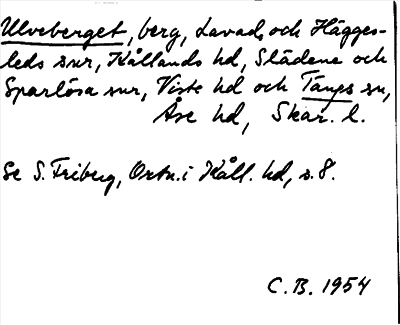 Ulveberget, berg, Lavads och Hägges-
leds snr, Kållands hd, Slädene och
Sparlösa snr, Viste hd och Tångs sn,
Åse hd, Skar. l.
Se S. Friberg, Ortn. i Kåll. hd, s. 8.
C. B. 1954